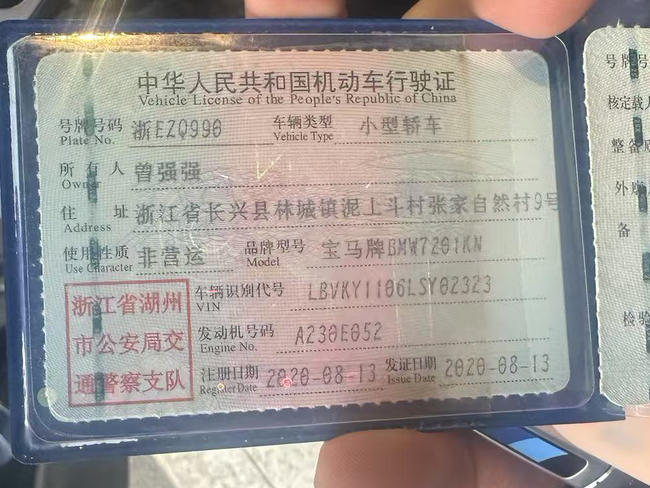 中华人民共和国机动车行驶证
Vehicle License of the People's Republic of China
号牌号码 浙EZQ990 车辆类型 小型轿车
Plate No. Vehicle Type
所有人 曾强强
Owner
住址 浙江省长兴县林城镇泥上斗村张家自然村9号
Address
使用性质 非营运 品牌型号 宝马牌BMW7201KN
Use Character Model
浙江省湖州
市公安局交
通警察支队
车辆识别代号 LBVKY1106LSY02323
VIN
发动机号码 A230E052
Engine No.
注册日期 2020-08-13 发证日期 2020-08-13
Register Date Issue Date
号牌号
核定载人
整备质
外廓
备
检验